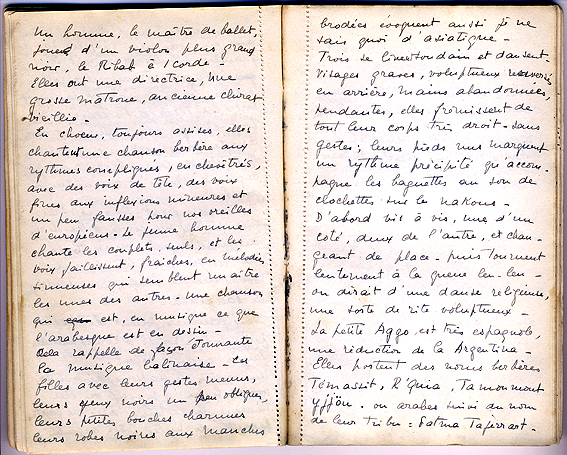 Un homme, le maître de ballet,
joue d'un violon plus grand
noir, le Ribab à 1 corde -
Elles ont une directrice, une
grosse matrone, ancienne chirat
vieillie -
En choeur, toujours assises, elles
chantent une chanson berbère aux
rythmes compliqués, enchevêtrés,
avec des voix de tête, des voix
fines aux inflexions mineures et
un peu fausses pour nos oreilles
d'européens - Le jeune homme
chante les couplets, seuls, et les
voix jaillissent, fraîches, en mélodies
sinueuses qui semblent naître
les unes des autres - Une chanson
qui est, en musique ce que
l'arabesque est en dessin -
Cela rappelle de façon étonnante
la musique balinaise - Ces
filles avec leurs gestes menus,
leurs yeux noirs un peu obliques,
leurs petites bouches charnues
leurs robes noires aux manches
brodées évoquent aussi je ne
sais quoi d'asiatique -
Trois se lèvent soudain et dansent -
Visages graves, voluptueux renversés
en arrière, mains abandonnées,
pendantes, elles frémissent de
tout leur corps très droit - sans
gestes ; leurs pieds nus marquent
un rythme précipité qu'accom-
pagne les baguettes au son de
clochettes sur le nakous -
D'abord vis à vis, une d'un
côté, deux de l'autre, et chan-
geant de place - puis tournent
lentement à la queue leu-leu -
on dirait d'une danse religieuse,
une sorte de rite voluptueux -
La petite Aggo est très espagnole,
une réduction de la Argentina -
Elles portent des noms berbères
Temassit, R'quia, Tamoumont
yjjou - ou arabes suivi du nom
de leur tribu : Fatma Taferrart -